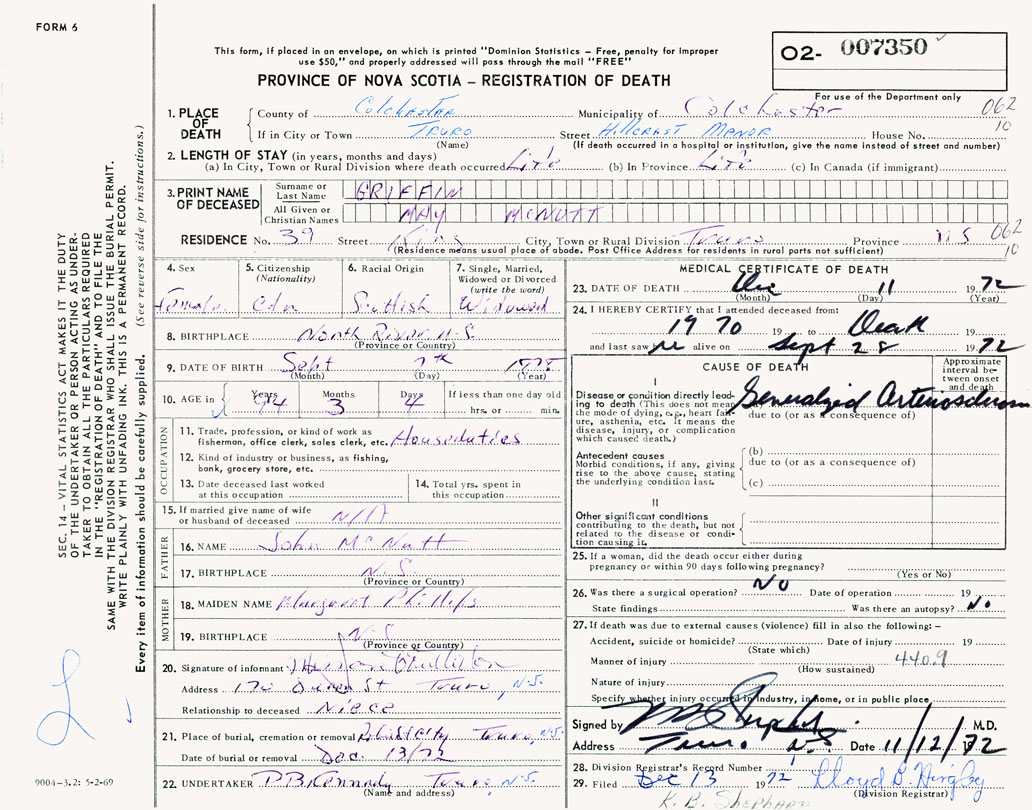 FORM 6
This form, if placed in an envelope, on which is printed "Dominion Statistics – Free, penalty for improper
use $50," and properly addressed will pass through the mail "FREE"
O2- 007350
PROVINCE OF NOVA SCOTIA – REGISTRATION OF DEATH
For use of the Department only
1. PLACE OF DEATH County of Colchester Municipality of Colchester 062
If in City or Town Truro Street Hillcrest Manor House No. 10
(Name) (If death occurred in a hospital or institution, give the name instead of street and number)
2. LENGTH OF STAY (in years, months and days)
(a) In City, Town or Rural Division where death occurred Life (b) In Province Life (c) In Canada (if immigrant)
3. PRINT NAME OF DECEASED Surname or Last Name GRIFFIN
All Given or Christian Names MAY MCNUTT
RESIDENCE No. 39 Street King City, Town or Rural Division Truro Province N S 062
(Residence means usual place of abode. Post Office Address for residents in rural parts not sufficient) 10
SEC. 14 – VITAL STATISTICS ACT MAKES IT THE DUTY
OF THE UNDERTAKER OR PERSON ACTING AS UNDER-
TAKER TO OBTAIN ALL THE PARTICULARS REQUIRED
IN THE "REGISTRATION OF DEATH" AND TO FILE THE
SAME WITH THE DIVISION REGISTRAR WHO SHALL ISSUE THE BURIAL PERMIT.
WRITE PLAINLY WITH UNFADING INK. THIS IS A PERMANENT RECORD.
Every item of information should be carefully supplied. (See reverse side for instructions.)
4. Sex Female
5. Citizenship (Nationality) Cdn
6. Racial Origin Scottish
7. Single, Married, Widowed or Divorced (write the word) Widowed
8. BIRTHPLACE North River N-S
(Province or Country)
9. DATE OF BIRTH Sept 7th
(Month) (Day) (Year)
10. AGE in Years 94 Months 3 Days 4 If less than one day old
hrs. or min.
OCCUPATION
11. Trade, profession, or kind of work as
fisherman, office clerk, sales clerk, etc. Houseduties
12. Kind of industry or business, as fishing,
bank, grocery store, etc.
13. Date deceased last worked
at this occupation
14. Total yrs. spent in
this occupation
15. If married give name of wife
or husband of deceased N/A
FATHER
16. NAME John McNutt
17. BIRTHPLACE N.S.
(Province or Country)
MOTHER
18. MAIDEN NAME Margaret Phillips
19. BIRTHPLACE N-S
(Province or Country)
20. Signature of informant
Address 170 Queen St Truro, N-S.
Relationship to deceased Niece
21. Place of burial, cremation or removal Truro, N-S.
Date of burial or removal Dec. 13/72
22. UNDERTAKER P.B. Kennedy Truro, N-S.
(Name and address)
9004-3.2: 5-2-69
MEDICAL CERTIFICATE OF DEATH
23. DATE OF DEATH Dec 11 1972
(Month) (Day) (Year)
24. I HEREBY CERTIFY that I attended deceased from:
1970 19 to Death
and last saw alive on Sept 28 1972
CAUSE OF DEATH
Approximate interval between onset and death
I
Disease or condition directly lead-
ing to death (This does not mean
the mode of dying, e.g., heart fail-
ure, asthenia, etc. It means the
disease, injury, or complication
which caused death.)
Generalized Arteriosclerosis
due to (or as a consequence of)
Antecedent causes
Morbid conditions, if any, giving
rise to the above cause, stating
the underlying condition last.
(b)
due to (or as a consequence of)
(c)
II
Other significant conditions
contributing to the death, but not
related to the disease or condi-
tion causing it.
25. If a woman, did the death occur either during
pregnancy or within 90 days following pregnancy?
(Yes or No)
26. Was there a surgical operation? NO Date of operation 19
State findings Was there an autopsy? No
27. If death was due to external causes (violence) fill in also the following: –
Accident, suicide or homicide? Date of injury 19
(State which)
Manner of injury 440.9
(How sustained)
Nature of injury
Specify whether injury occurred in industry, in home, or in public place
Signed by M.D.
Address Truro N.S Date 11/12/1972
28. Division Registrar's Record Number
29. Filed Dec 13 1972 Lloyd
(Division Registrar)
K. B. Shephard